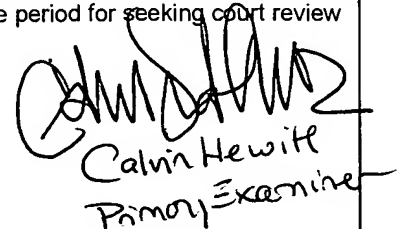 e period for seeking court review
Calvin Hewitt
Primary Examiner